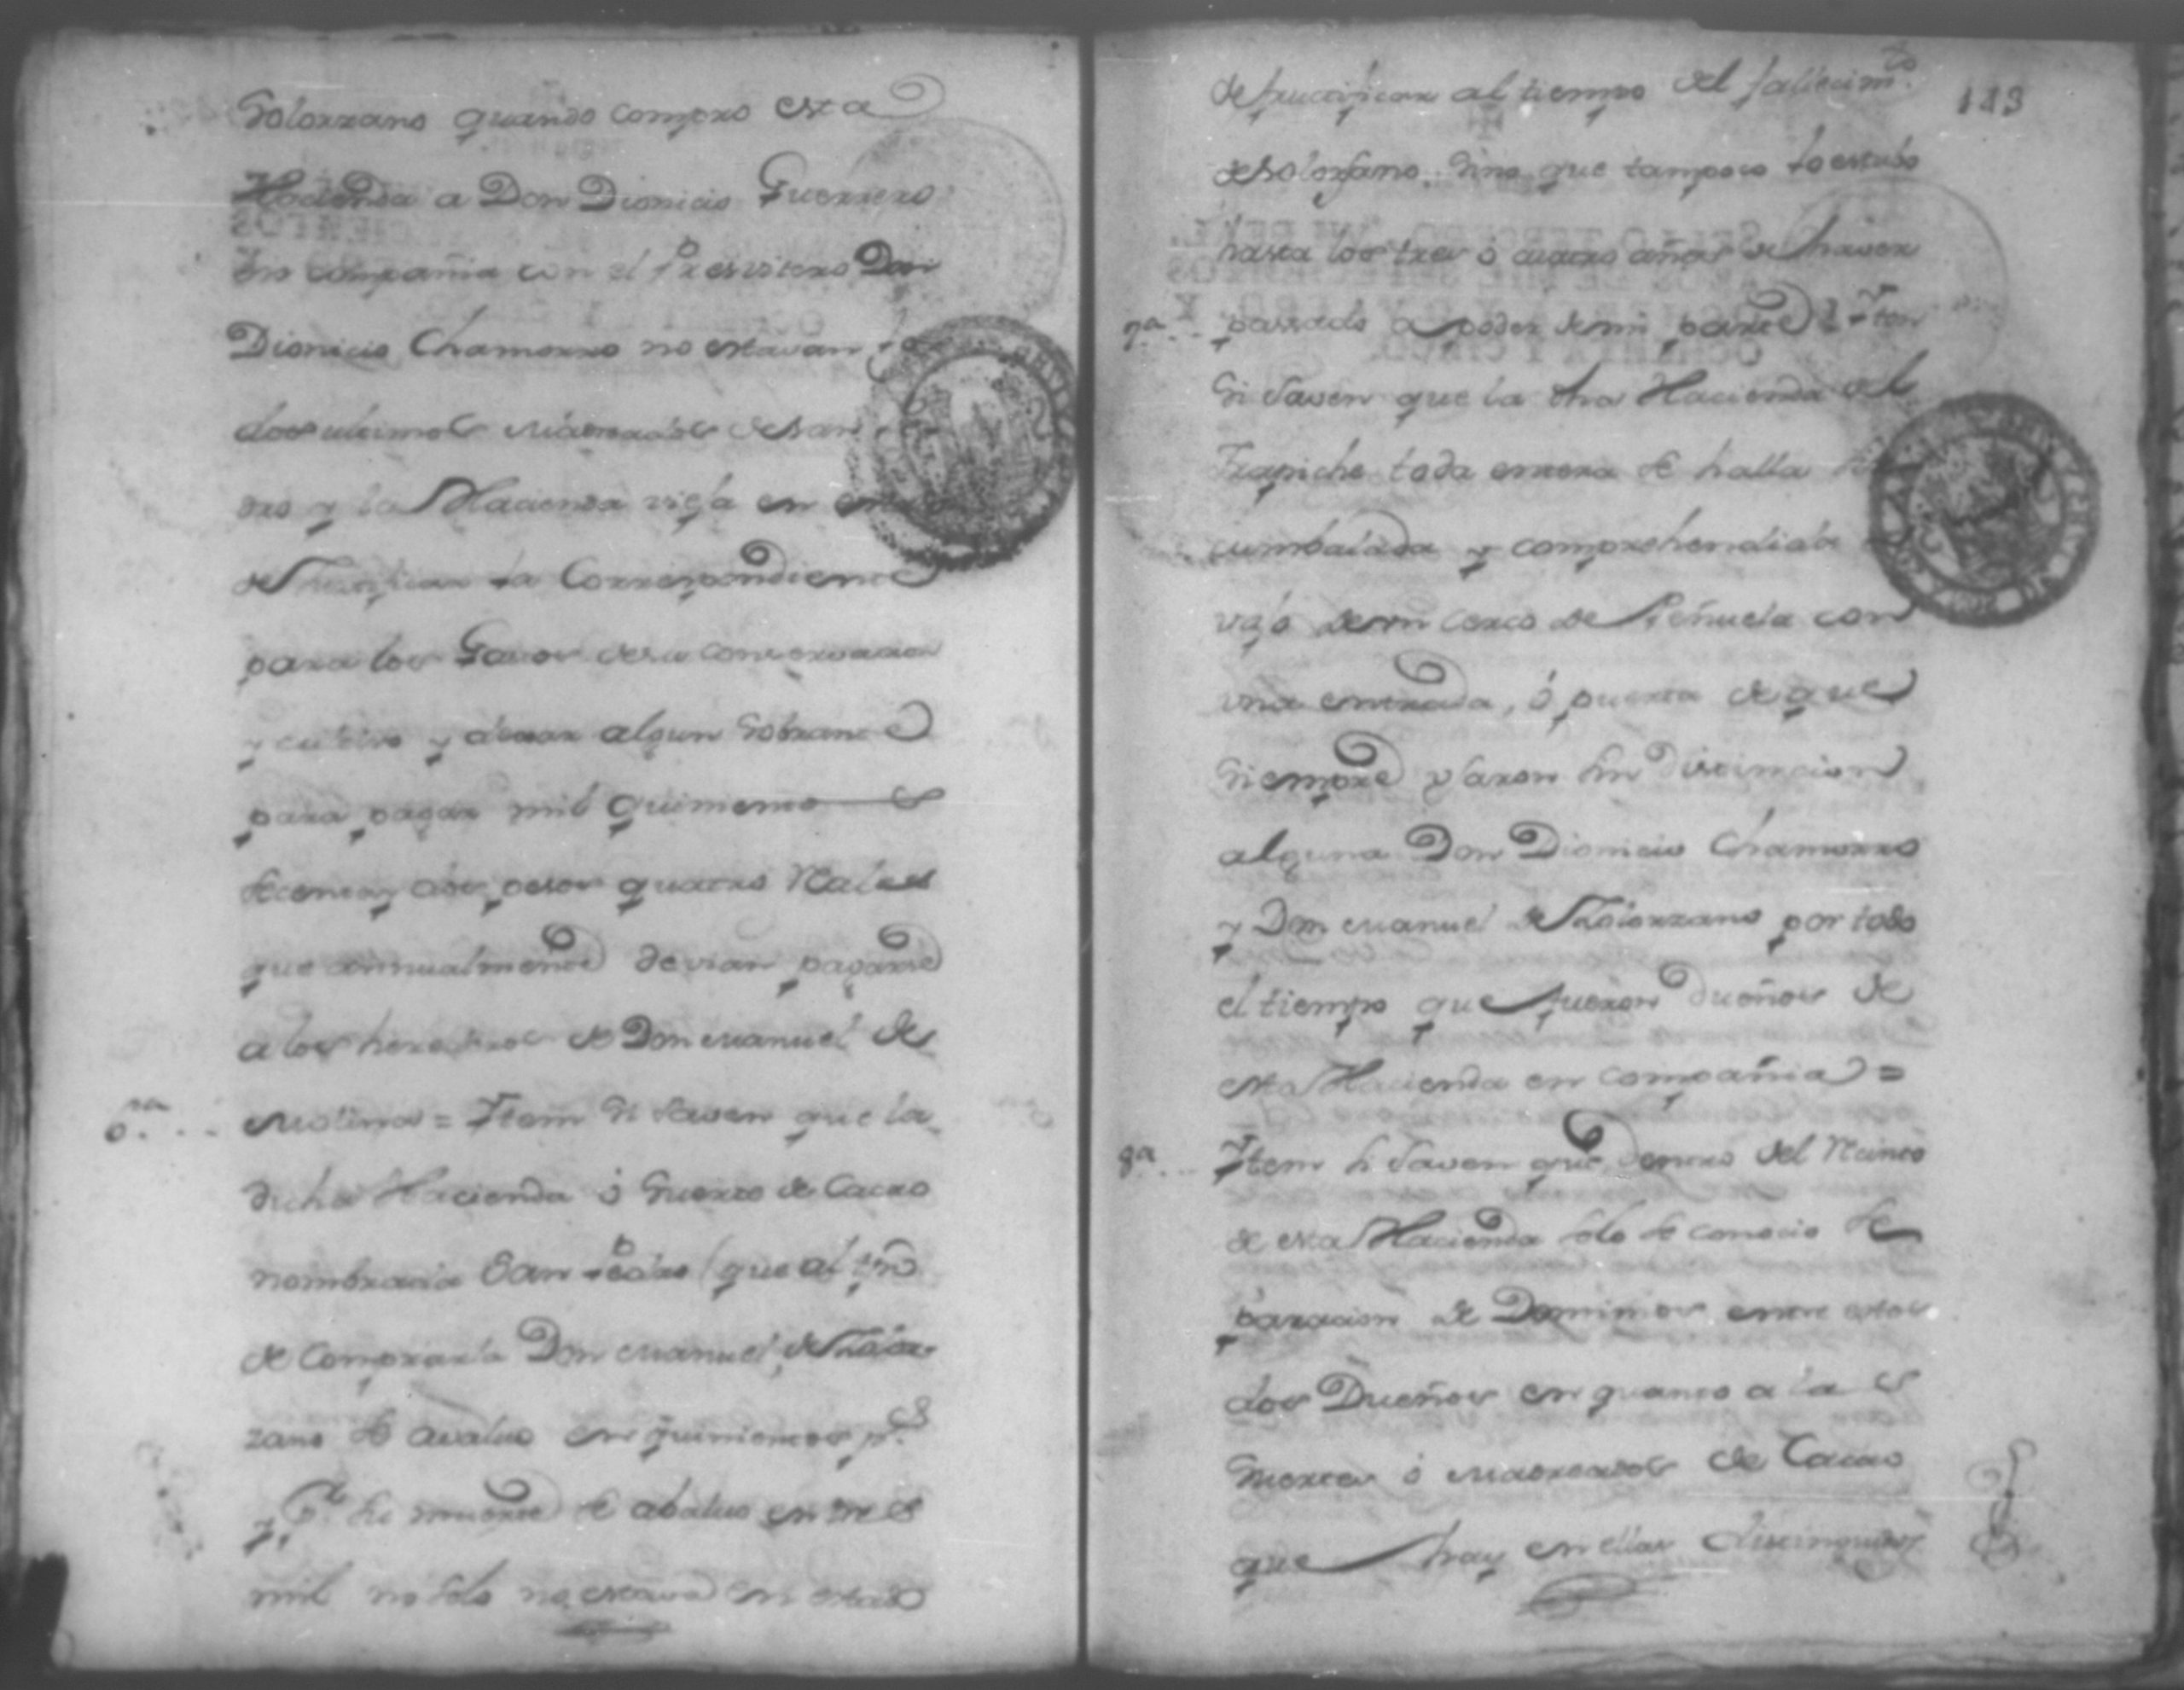 Solorzano quando compro esta
Hacienda a Don Dionicio Guerrero
en compañia con el Presvitero Don
Dionicio Chamorro no estavan
los ultimos Maoreados de San
dro y la Hacienda vieja en
de fructificar la Correspondiente
para los Gastos de su conservacion
y cultivo y dexar algun Sobrante
para pagar mil quinientos
secenta y dos pesos quatro Reales
que annualmente devian pagarse
a los herederos de Don Manuel de
6.ta .. Molina = Ytem Si saven que la
dicha Hacienda ó Guerto de Cacao
nombrada San Pedro (que al tpo
de comprarla Don Manuel de Solor-
zano se avaluo en quinientos p.s
y p.r su muerte se abaluo en tres
mil no solo no estava en estado
113
de fructificar al tiempo del fallecim.to
de Solorsano, Sino que tampoco lo estubo
hasta los tres ó quatro años de haver
7.a .. passado a poder de mi parte = Ytem
Si Saven que la dha Hacienda del
Trapiche toda entera se halla
cumbalada y comprehendida
vajo de un cerco de Piñuela con
una entrada, ó puerta de que
Siempre usaron sin distincion
alguna Don Dionicio Chamorro
y Don Manuel de Solorzano por todo
el tiempo que fueron dueños de
esta Hacienda en compañia =
8.a .. Ytem si Saven que dentro del Recinto
de esta Hacienda solo se conocio se
paracion de Dominios entre estos
dos Dueños en quanto a las
Guertas ó Maoreados de Cacao
que hay en ellas distinguidos